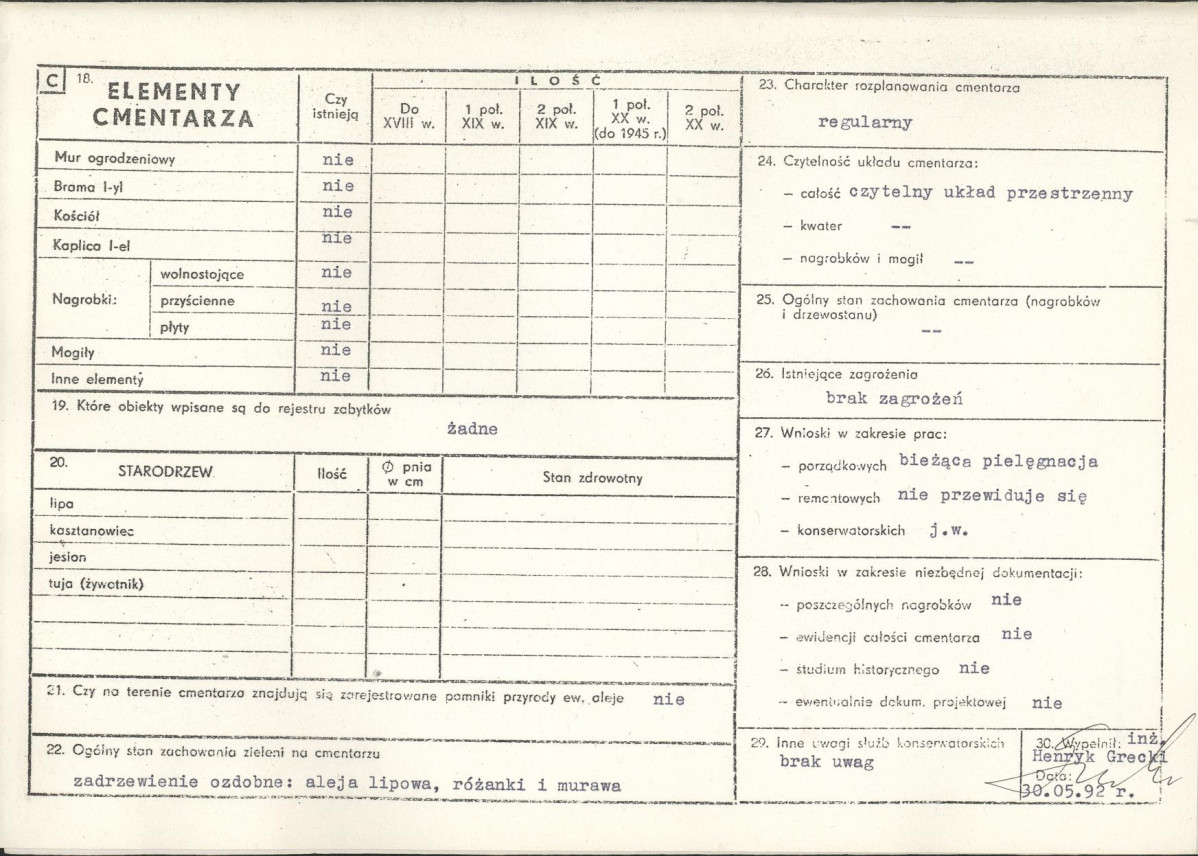 C 18. ELEMENTY CMENTARZA
Czy istnieją
ILOŚĆ
Do XVIII w.
1 poł. XIX w.
2 poł. XIX w.
1 poł. XX w. (do 1945 r.)
2 poł. XX w.
Mur ogrodzeniowy nie
Brama I-yl nie
Kościół nie
Kaplica I-el nie
Nagrobki: wolnostojące nie
przyścienne nie
płyty nie
Mogiły nie
Inne elementy nie
19. Które obiekty wpisane są do rejestru zabytków
żadne
20. STARODRZEW Ilość Ø pnia w cm Stan zdrowotny
lipa
kasztanowiec
jesion
tuja (żywotnik)
21. Czy na terenie cmentarza znajdują się zarejestrowane pomniki przyrody ew. aleje nie
22. Ogólny stan zachowania zieleni na cmentarzu
zadrzewienie ozdobne: aleja lipowa, różanki i murawa
23. Charakter rozplanowania cmentarza
regularny
24. Czytelność układu cmentarza:
— całość czytelny układ przestrzenny
— kwater --
— nagrobków i mogił --
25. Ogólny stan zachowania cmentarza (nagrobków
i drzewostanu)
--
26. Istniejące zagrożenia
brak zagrożeń
27. Wnioski w zakresie prac:
— porządkowych bieżąca pielęgnacja
— remontowych nie przewiduje się
— konserwatorskich j.w.
28. Wnioski w zakresie niezbędnej dokumentacji:
— poszczególnych nagrobków nie
— ewidencji całości cmentarza nie
— studium historycznego nie
— ewentualnie dokum. projektowej nie
29. Inne uwagi służb konserwatorskich
brak uwag
30. Wypełnił: inż.
Henryk Grecki
Data:
30.05.92 r.